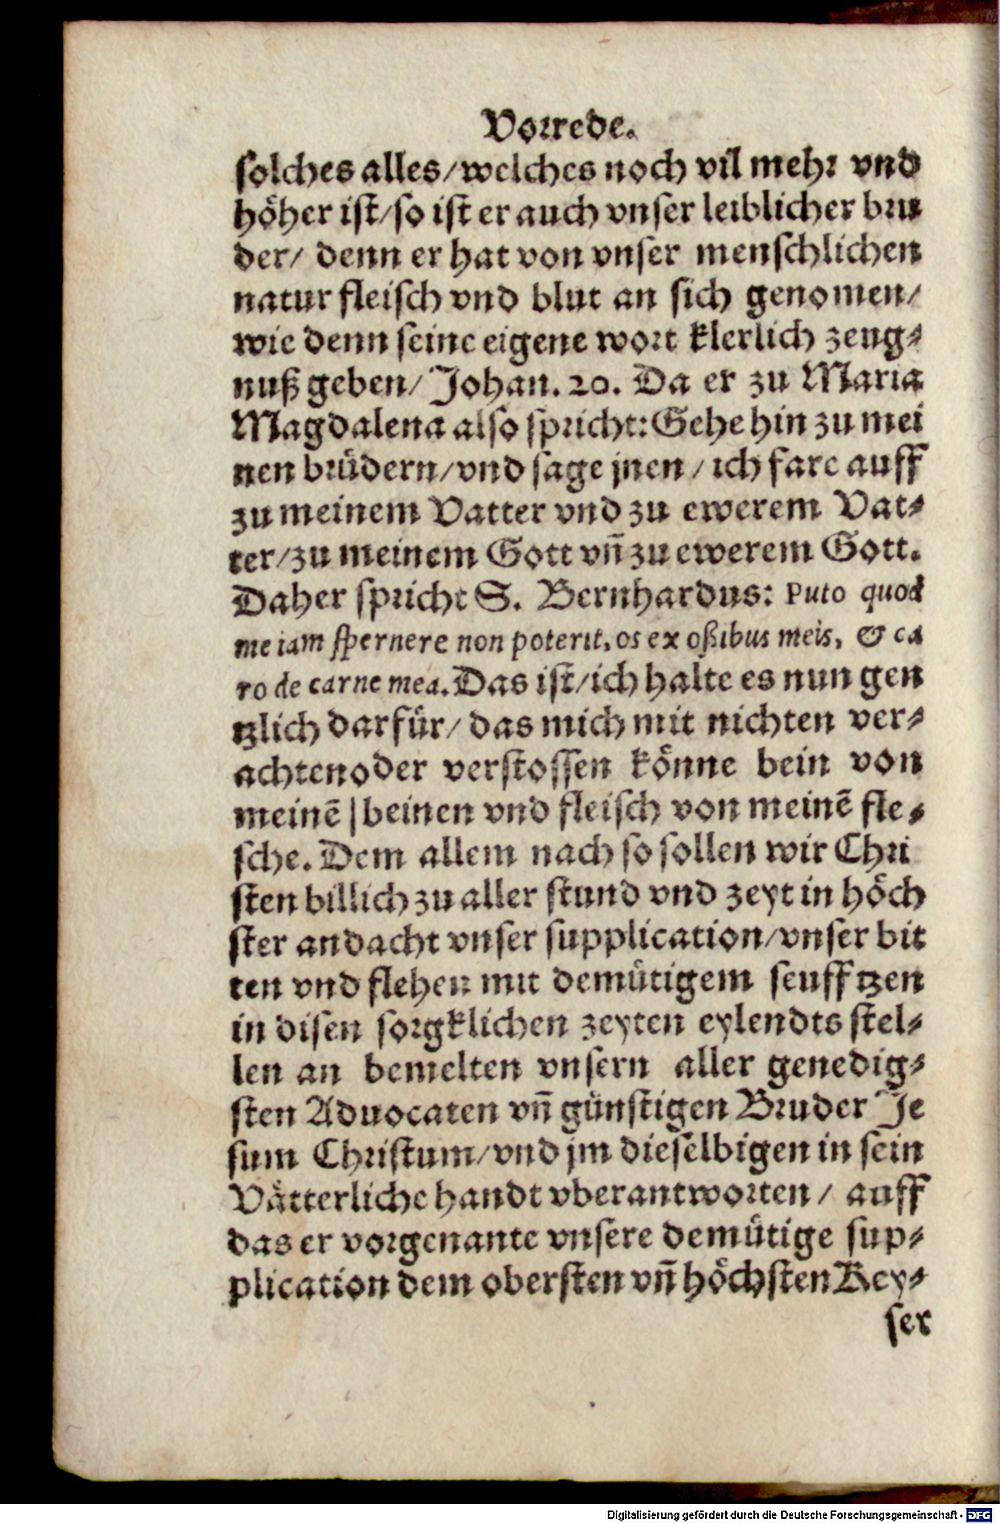 Vorrede.
solches alles/welches noch vil mehr vnd
höher ist/so ist er auch vnser leiblicher bru
der/ denn er hat von vnser menschlichen
natur fleisch vnd blut an sich genomen/
wie denn seine eigene wort klerlich zeug⸗
nuß geben/ Johan. 20. Da er zu Maria
Magdalena also spricht: Gehe hin zu mei
nen brüdern/vnd sage jnen / ich fare auff
zu meinem Vatter vnd zu ewerem Vat⸗
ter/zu meinem Gott vñ zu ewerem Gott.
Daher spricht S. Bernhardus: Puto quod
me iam spernere non poterit, os ex oßibus meis, & ca
ro de carne mea. Das ist/ich halte es nun gen
tzlich darfür/ das mich mit nichten ver⸗
achtenoder verstossen könne bein von
meinẽ beinen vnd fleisch von meinẽ fle⸗
sche. Dem allem nach so sollen wir Chri
sten billich zu aller stund vnd zeyt in höch
ster andacht vnser supplication/vnser bit
ten vnd flehen mit demütigem seufftzen
in disen sorgklichen zeyten eylendts stel⸗
len an bemelten vnsern aller genedig⸗
sten Aduocaten vñ günstigen Bruder Je
sum Christum/vnd jm dieselbigen in sein
Vätterliche handt vberantworten/ auff
das er vorgenante vnsere demütige sup⸗
plication dem obersten vñ höchsten Key⸗
ser
Digitalisierung gefördert durch die Deutsche Forschungsgemeinschaft - DFG